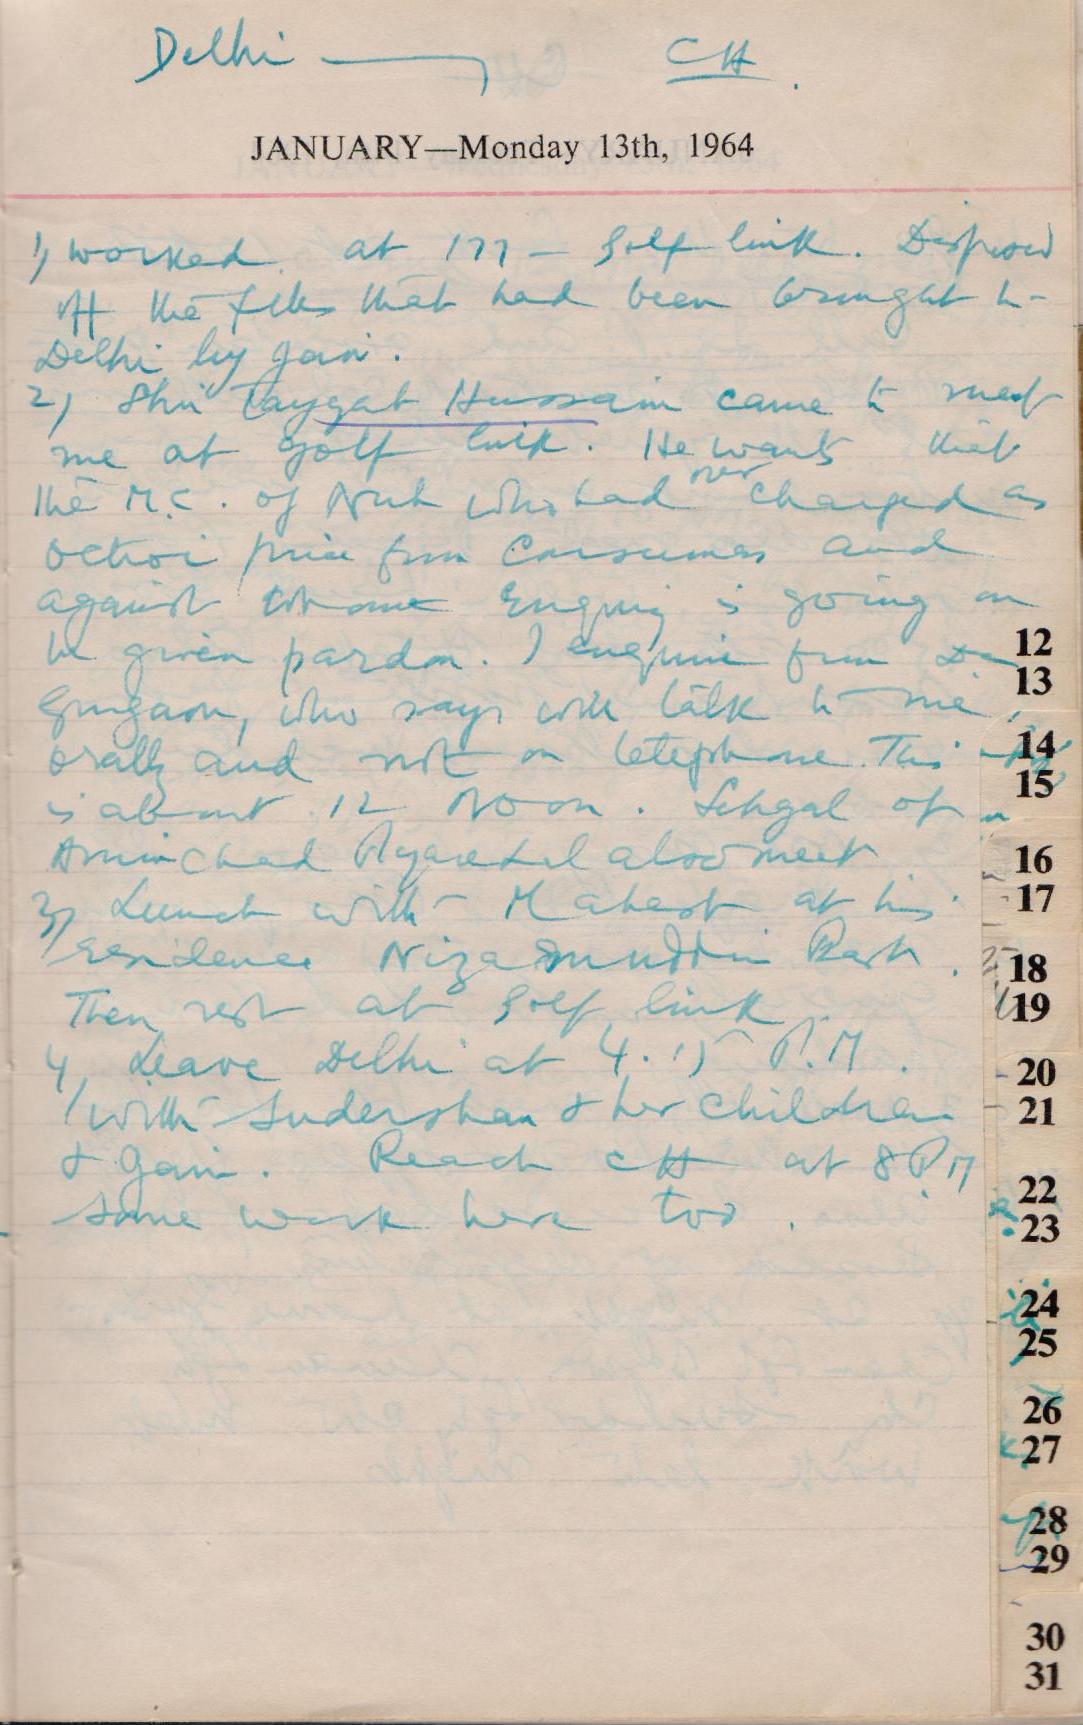 Delhi — CH.
JANUARY—Monday 13th, 1964
1) worked at 177 - Golf link. Disposed
off the files that had been brought to
Delhi by Jain.
2) Shri Tayyab Hussain came to meet
me at golf link. He wants that
the M.C. of Nuh who had over charged as
octroi price from Consumers and
against whom enquiry is going on
be given pardon. I enquire from DC
Gurgaon, who says will talk to me
orally and not on telephone. This
is about 12 Noon. Sehgal of
Aminchand Pyarelal also meet
3) Lunch with Mahesh at his
residence Nizammuddin East.
Then rest at Golf link
4) Leave Delhi at 4.15 P.M.
with Sudershan & her children
& Jain. Reach CH at 8 PM
Some work here too.
12
13
14
15
16
17
18
19
20
21
22
23
24
25
26
27
28
29
30
31